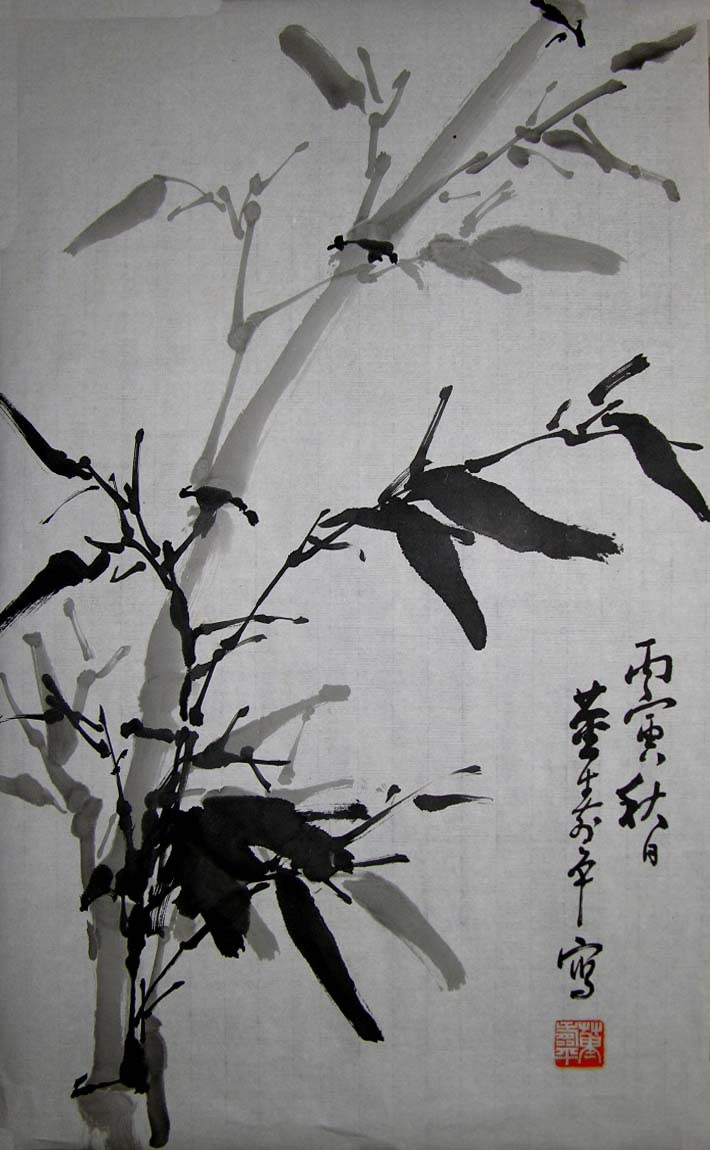 丙寅秋日
董壽平寫
董壽平